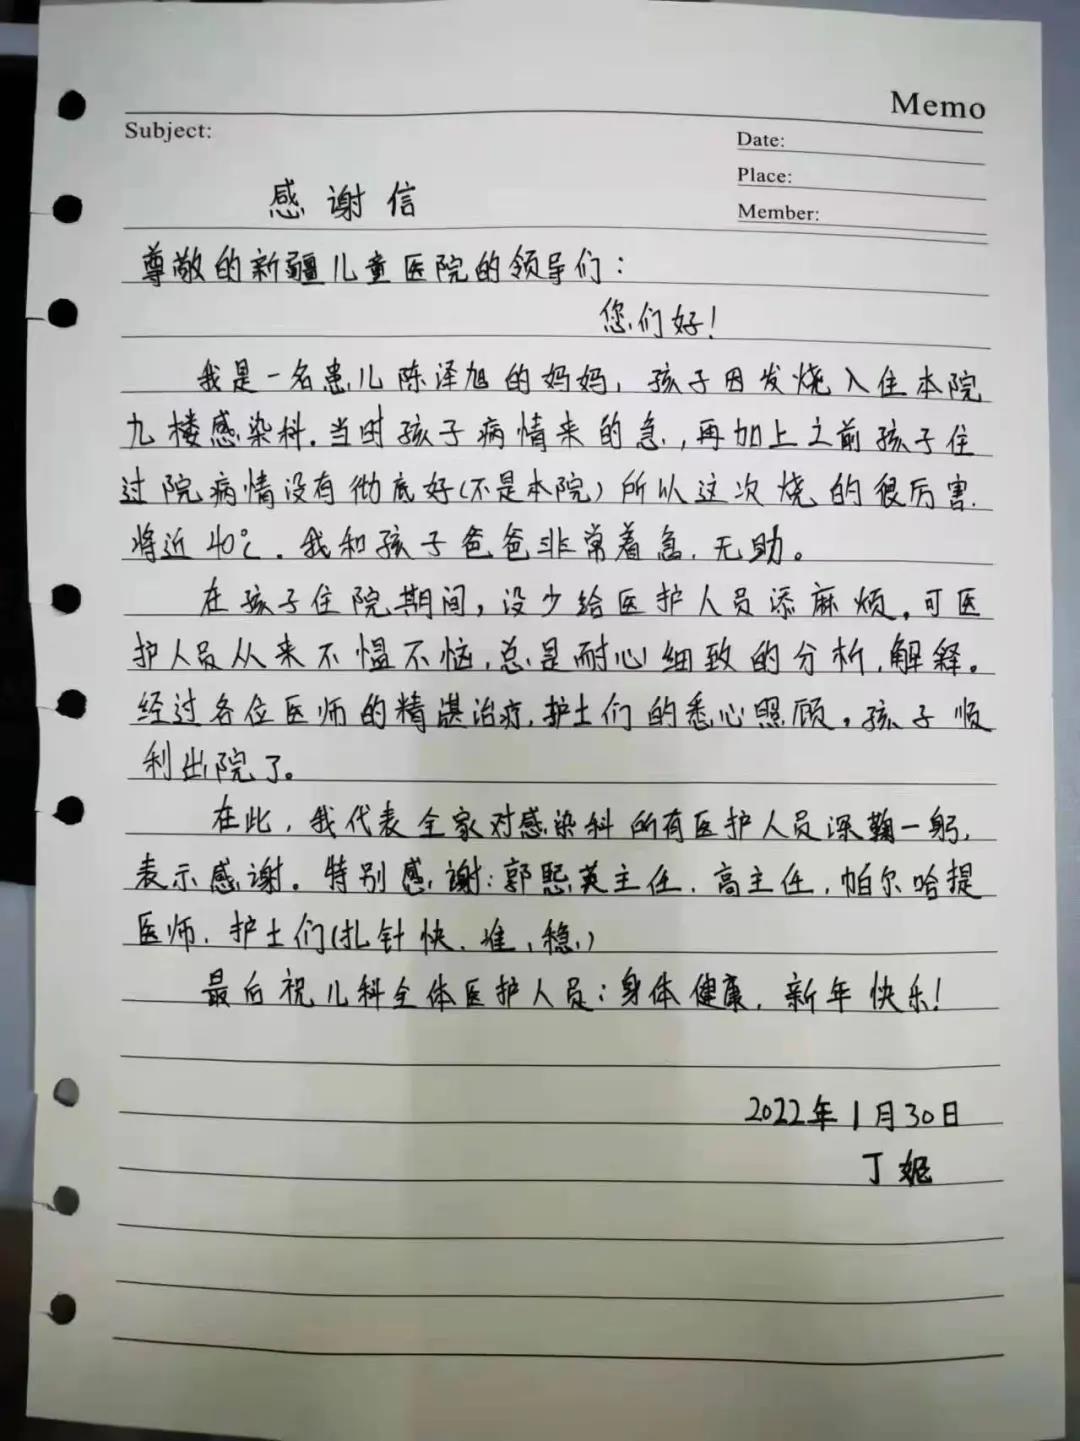 Memo
Subject:
Date:
Place:
Member:
感谢信
尊敬的新疆儿童医院的领导们：
您们好！
我是一名患儿陈泽旭的妈妈，孩子因发烧入住本院
九楼感染科.当时孩子病情来的急，再加上之前孩子住
过院病情没有彻底好(不是本院)所以这次烧的很厉害.
将近40℃.我和孩子爸爸非常着急.无助。
在孩子住院期间，没少给医护人员添麻烦，可医
护人员从来不愠不恼，总是耐心细致的分析，解释。
经过各位医师的精湛治疗，护士们的悉心照顾，孩子顺
利出院了。
在此，我代表全家对感染科所有医护人员深鞠一躬，
表示感谢。特别感谢：郭熙英主任、高主任，帕尔哈提
医师、护士们(扎针快、准、稳)
最后祝儿科全体医护人员：身体健康，新年快乐！
2022年1月30日
丁妮